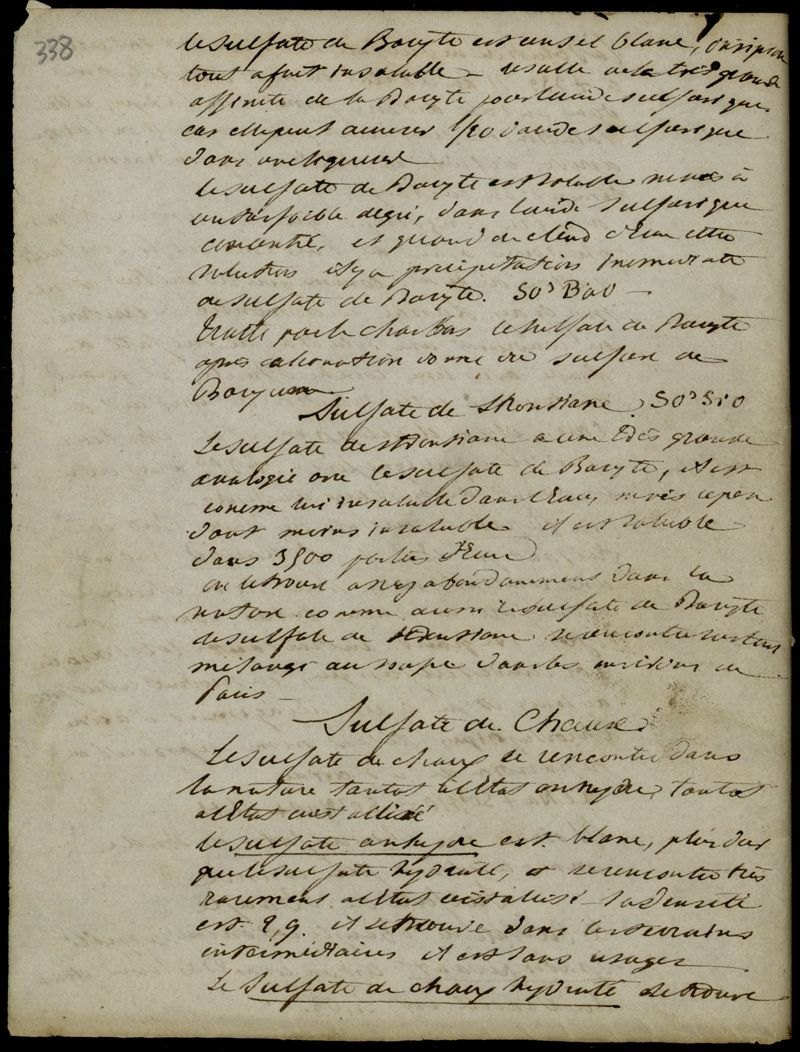 338
le sulfate de Baryte est un sel blanc, insipide
tout a fait insoluble resulte de la très grande
affinité de la Baryte pour l'acide sulfurique
car elle peut accuser 1/20 d'acide sulfurique
dans une liqueur
le sulfate de Baryte est soluble mais à
un très foible degré, dans l'acide sulfurique
concentré, et quand on étend d'eau cette
solution il y a précipitation immediate
de sulfate de Baryte. SO³ BaO —
traité par le charbon le sulfate de Baryte
après calcination donne du sulfure de
Baryum
Sulfate de Strontiane. SO³ StO
Le sulfate de strontiane a une très grande
analogie avec le sulfate de Baryte, il est
comme lui insoluble dans l'eau, mais cepen
dant moins insoluble il est soluble
dans 3500 parties d'eau
on le trouve assez abondamment dans la
nature comme aussi le sulfate de Baryte
le sulfate de strontiane se rencontre surtout
mélangé au soufre dans les environs de
Paris —
Sulfate de Chaux
Le sulfate de chaux se rencontre dans
la nature tantot a l'état anhydre, tantot
a l'état cristallisé
le sulfate anhydre est blanc, plus dur
que le sulfate hydraté, et se rencontre très
rarement a l'état cristallisé sa densité
est 2,9. il se trouve dans les terrains
intermédiaires il est sans usages
Le sulfate de chaux hydraté se trouve